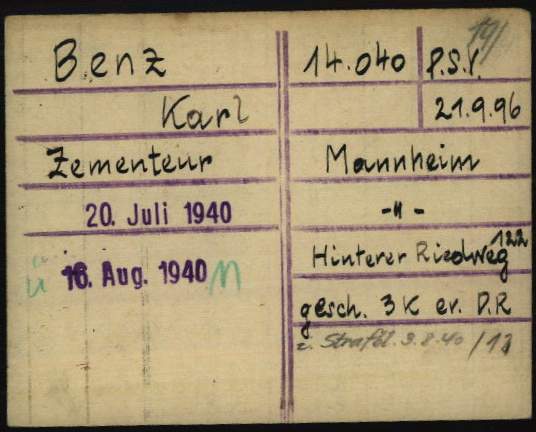 Benz
Karl
Zementeur
20. Juli 1940
ü 16. Aug. 1940 M
19/
14.040 P.S.V.
21.9.96
Mannheim
-"-
Hinterer Riedweg 122
gesch. 3 K ev. D.R
z. Strafbl. 9.8.40 /13